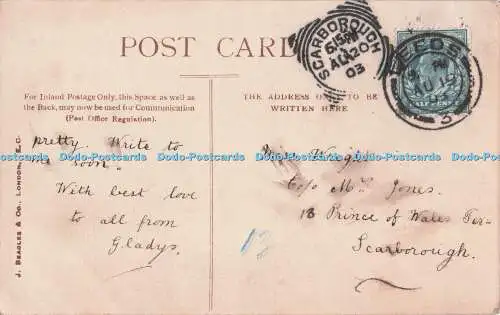 POST CARD
SCARBOROUGH
6.15PM
AU 20
03
LEEDS
HALFPENNY
For Inland Postage Only, this Space as well as
the Back, may now be used for Communication
(Post Office Regulation).
THE ADDRESS ONLY TO BE
WRITTEN HERE
J. BEAGLES & Co., LONDON, E.C.
pretty. Write to
me soon.
With best love
to all from
Gladys.
c/o Mrs Jones.
13 Prince of Wales Ter-
Scarborough.
Dodo-Postcards Dodo-Postcards Dodo-Postcards Dodo-Postcards Dodo-Postcards